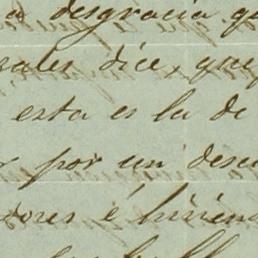 a desgracia qu
sales dice, que
esta es la de
r por un descu
dores é hirien